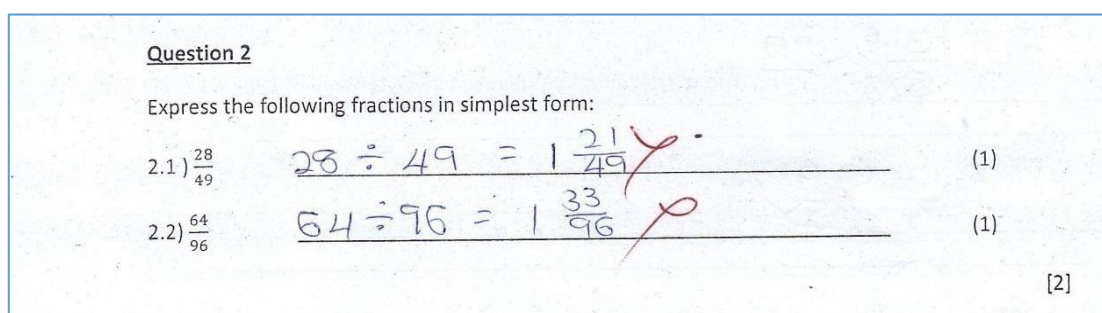 Question 2
Express the following fractions in simplest form:
2.1) 28/49 28 ÷ 49 = 1 21/49 (1)
2.2) 64/96 64 ÷ 96 = 1 33/96 (1)
[2]